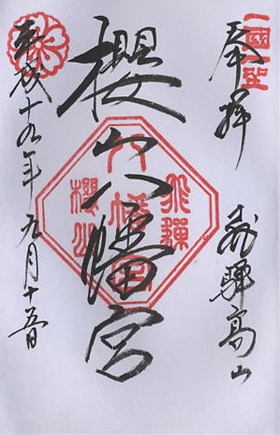 奉拝
飛驒高山
櫻山八幡宮
平成十九年九月十五日
飛驒
八幡宮
櫻山